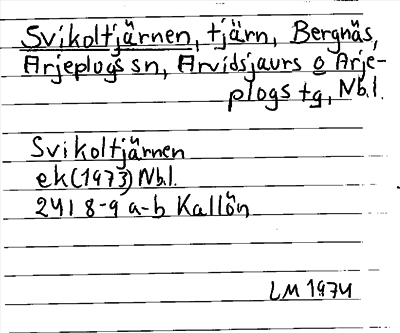 Svikoltjärnen, tjärn, Bergnäs,
Arjeplogs sn, Arvidsjaurs o Arje-
plogs tg, Nb.l.
Svikoltjärnen
ek (1973) Nb.l.
24I 8-9 a-b Kallön
LM 1974